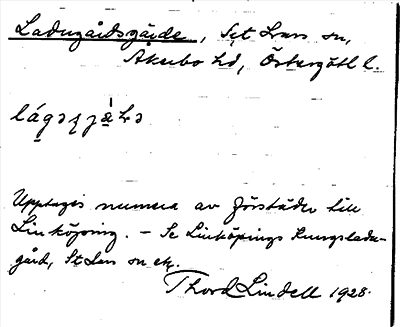 Ladugårdsgärde, S:t Lars sn,
Åkerbo hd, Östergötl l.
Upptages numera av förstäder till
Linköping. – Se Linköpings Kungsladu-
gård, St Lars sn etc.
Thord Lindell 1928.